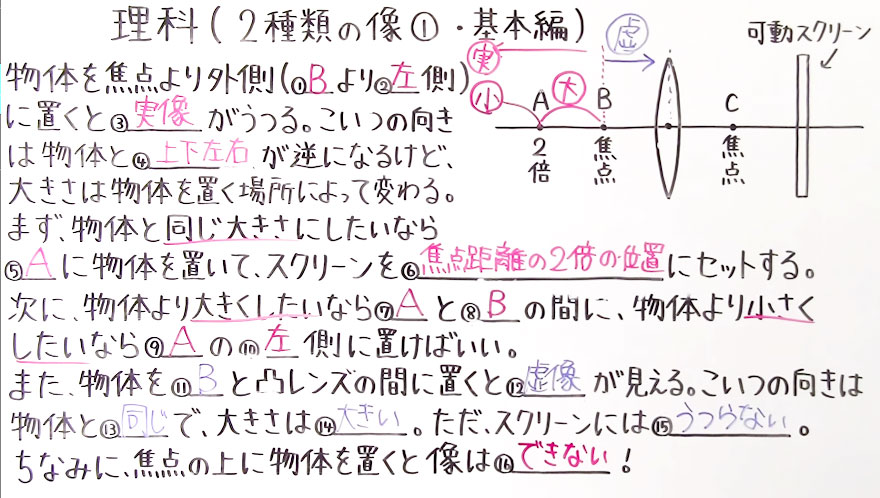 理科(2種類の像①・基本編)
物体を焦点より外側(①Bより②左側)
に置くと③実像がうつる。こいつの向き
は物体と④上下左右が逆になるけど、
大きさは物体を置く場所によって変わる。
まず、物体と同じ大きさにしたいなら
⑤Aに物体を置いて、スクリーンを⑥焦点距離の2倍の位置にセットする。
次に、物体より大きくしたいなら⑦Aと⑧Bの間に、物体より小さく
したいなら⑨Aの⑩左側に置けばいい。
また、物体を⑪Bと凸レンズの間に置くと⑫虚像が見える。こいつの向きは
物体と⑬同じで、大きさは⑭大きい。ただ、スクリーンには⑮うつらない。
ちなみに、焦点の上に物体を置くと像は⑯できない!
実
虚
可動スクリーン
小
大
A
B
C
2倍
焦点
焦点